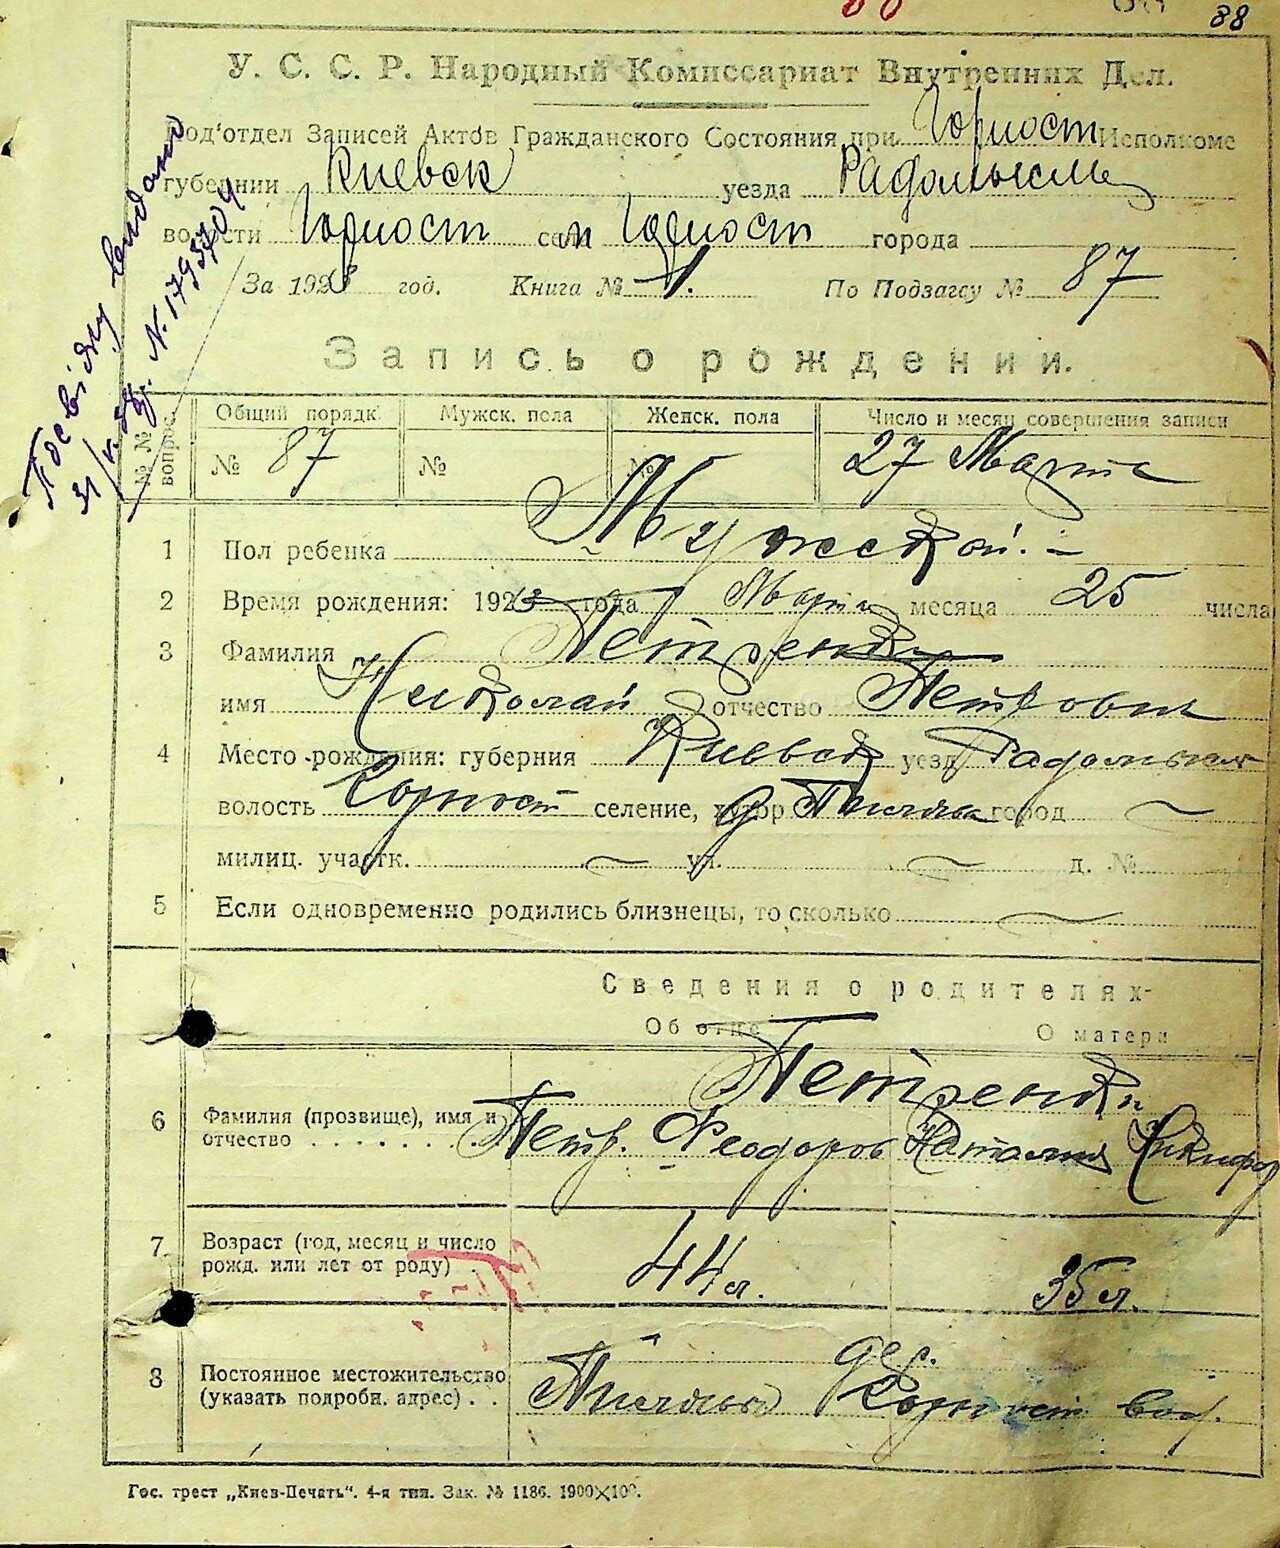 88
У. С. С. Р. Народный Комиссариат Внутренних Дел.
Под'отдел Записей Актов Гражданского Состояния при Горност Исполкоме
губернии Киевск уезда Радомысль
волости Горност села Горност города
За 1923 год. Книга № 1. По Подзагсу № 87
Посвідку видано
31/ N. 1795704
Запись о рождении.
№ № вопрос. Общий порядк. Мужск. пола Женск. пола Число и месяц совершения записи
№ 87 № № 27 Марта
1 Пол ребенка Мужской.
2 Время рождения: 1923 года Марта месяца 25 числа
3 Фамилия Петренко
имя Николай отчество Петрович
4 Место рождения: губерния Киевск уезд Радомысл
волость Горност селение, хутор д город
милиц. участк. ул. д. №
5 Если одновременно родились близнецы, то сколько
Сведения о родителях
Об отце О матери
Петренки
6 Фамилия (прозвище), имя и Петр. Феодоров Наталия Никифор
отчество . . . . . . .
7 Возраст (год, месяц и число 44 л. 35 л.
рожд. или лет от роду)
8 Постоянное местожительство дер.
(указать подробн. адрес) . . Горност вол.
Гос. трест „Киев-Печать". 4-я тип. Зак. № 1186. 1900×100.